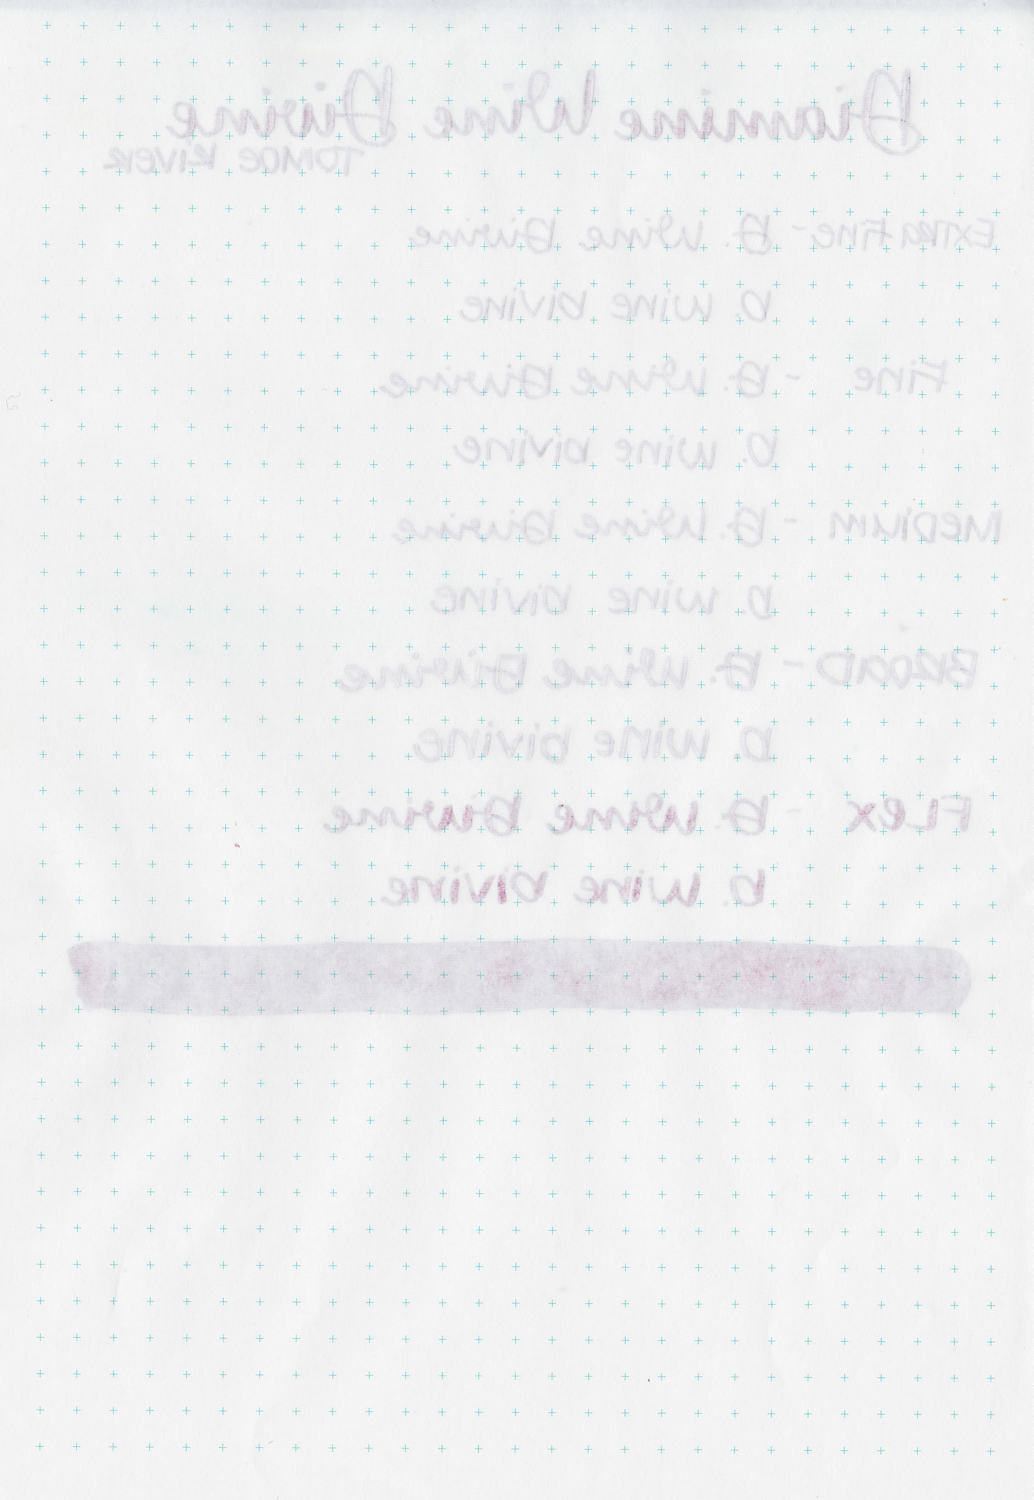 Diamine Wine Divine
TOMOE RIVER
EXTRA FINE - D. Wine Divine
D. Wine Divine
Fine - D. Wine Divine
D. Wine Divine
MEDIUM - D. Wine Divine
D. Wine Divine
BROAD - D. Wine Divine
D. Wine Divine
FLex - D. Wine Divine
D. Wine Divine